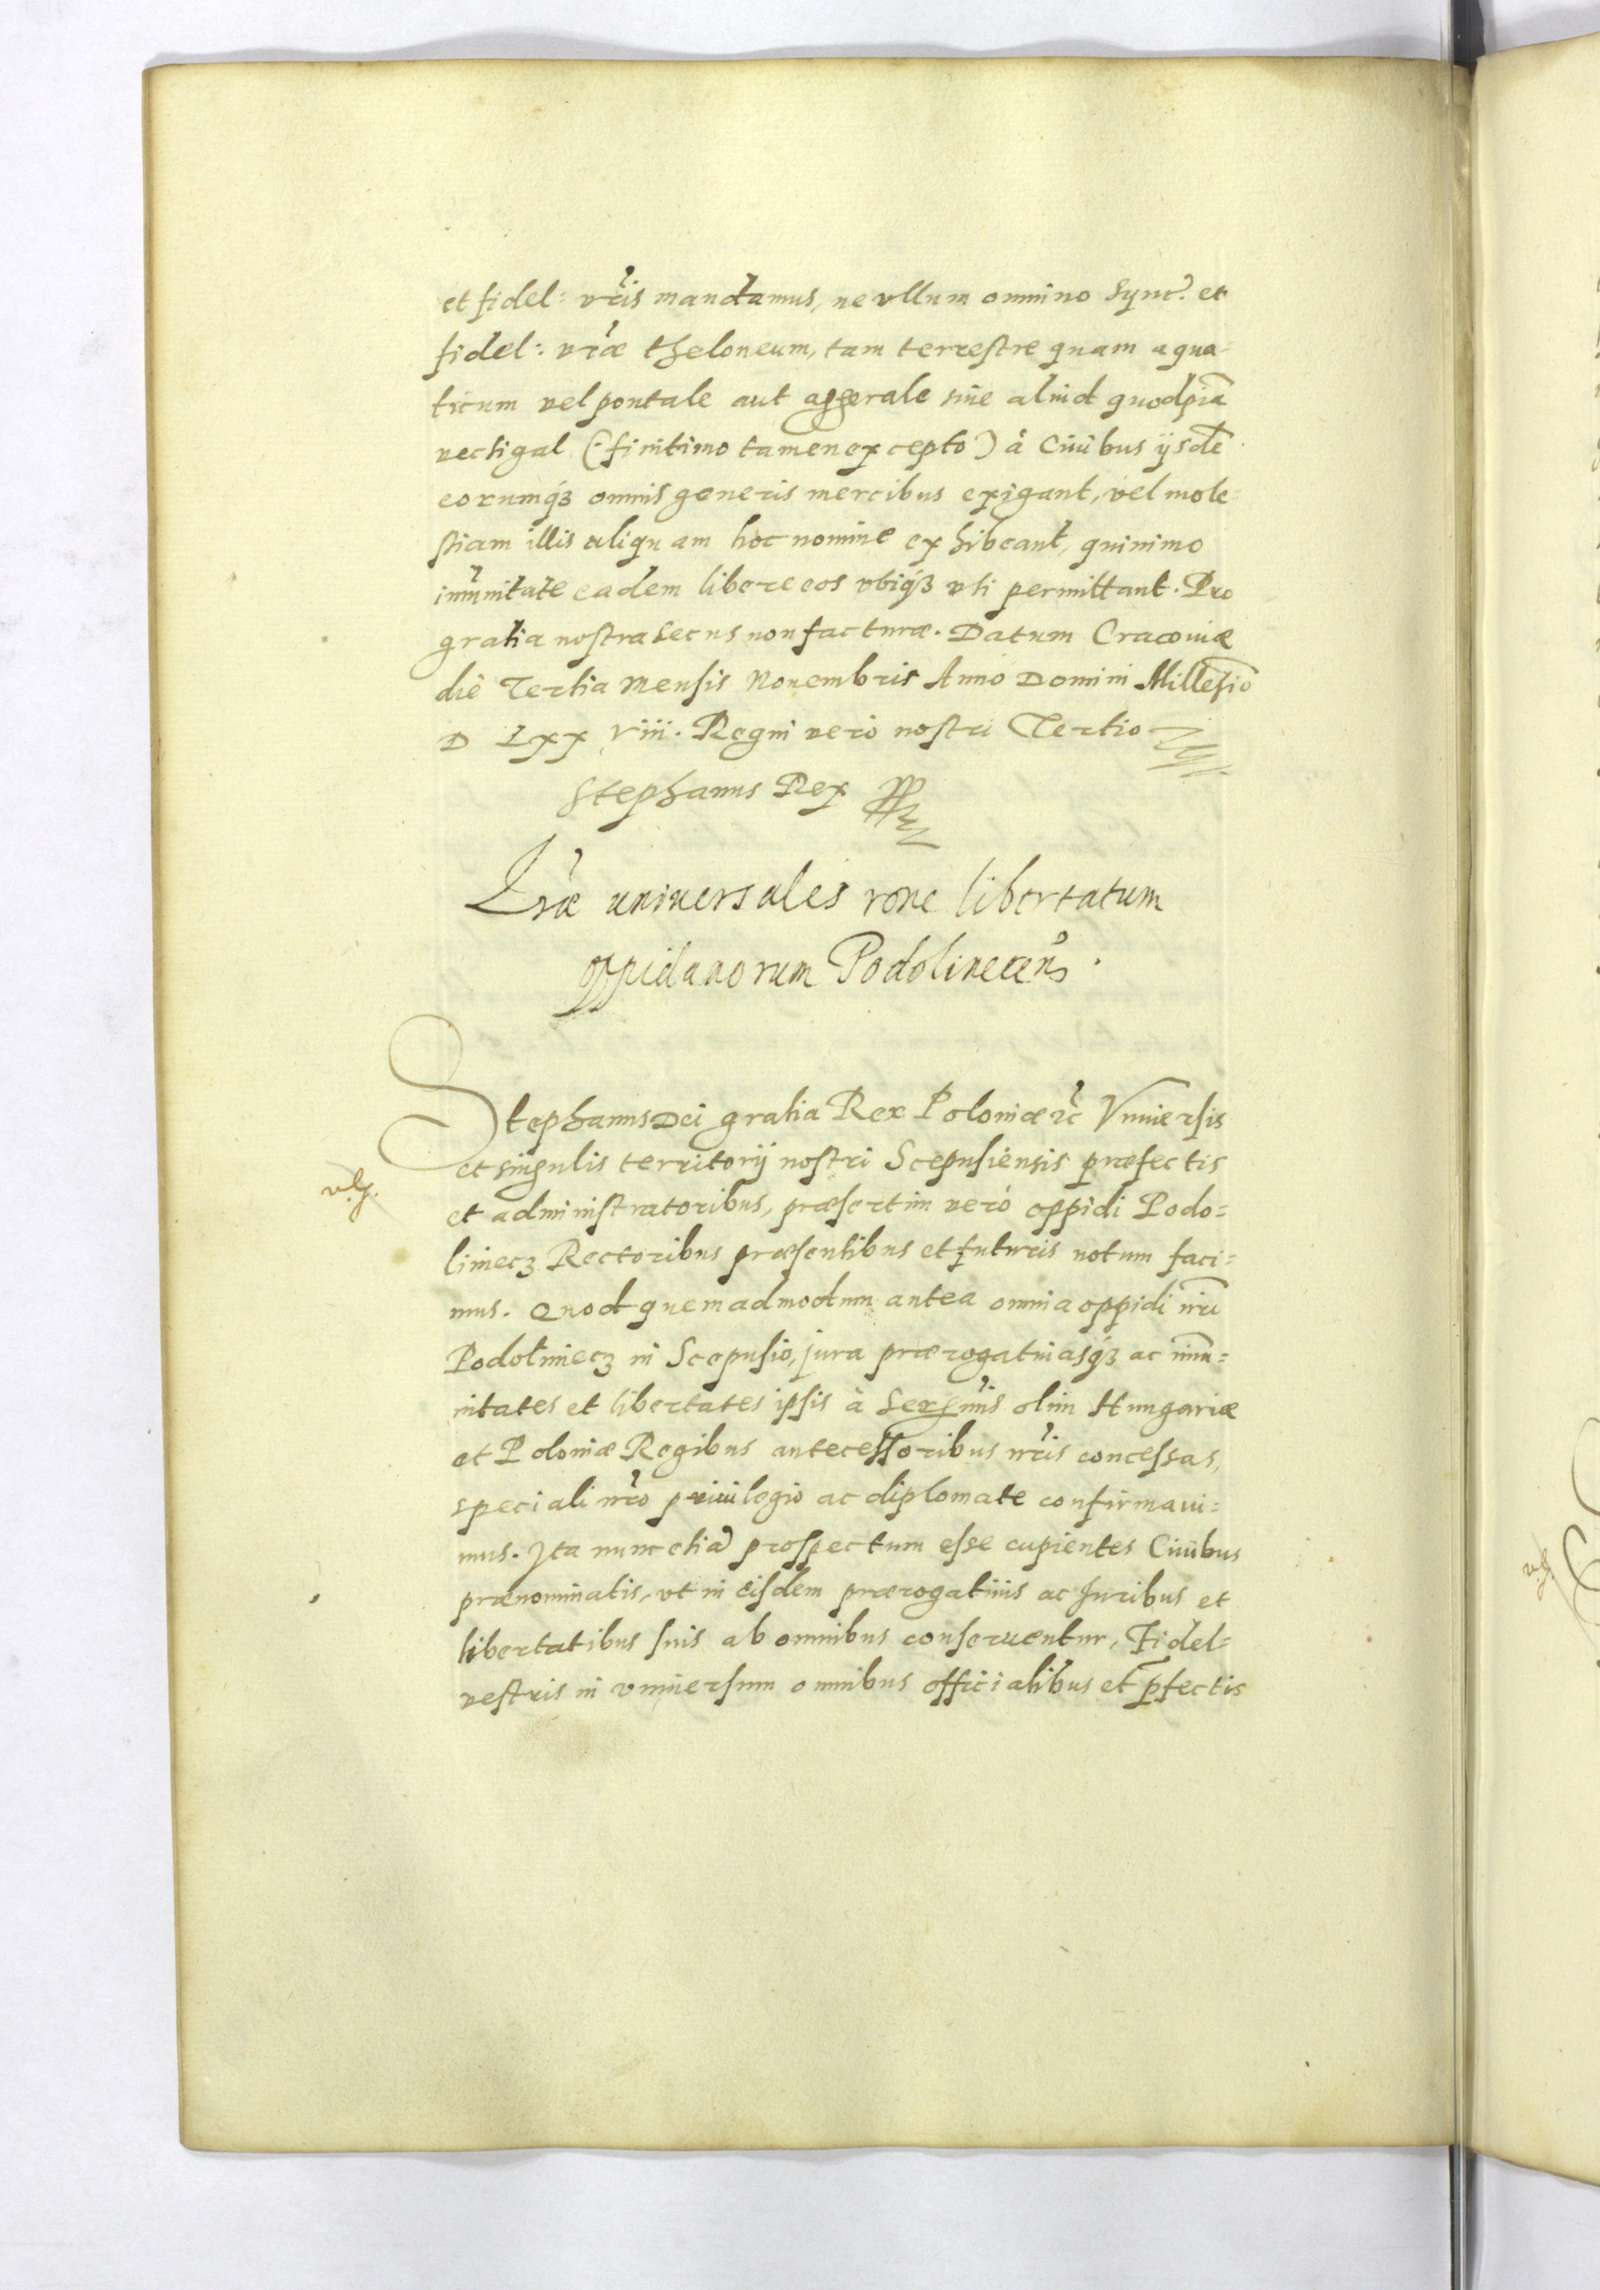 et fidel: vris mandamus, ne vllum omnino Sync? et
fidel: vrae theloneum, tam terrestre quam aqua-
ticum vel pontale aut aggerale siue aliud quodpiã
vectigal (: finitimo tamen excepto) à Ciuibus ijsdē
eorumq3 omnis generis mercibus exigant, vel mole-
stiam illis aliquam hoc nomine exhibeant, quinimo
immnitate eadem libere eos vbiq3 vti permittant. Pro
gratia nostra secus non facturae. Datum Cracouiae
die Tertia Mensis Nouembris Anno Domini Millesio
D LXX Viii. Regni vero nostri Tertio
Stephanus Rex
Lrae uniuersales rone libertatum
oppidanorum Podolinecens.
Stephanus Dei gratia Rex Poloniae rc Vniuersis
et singulis territorij nostri Scepusiensis praefectis
et administratoribus, praesertim verò oppidi Podo=
liniecz Rectoribus praesentibus et futuris notum faci=
mus. Quod quemadmodum antea omnia oppidi nri
Podoliniecz in Scepusio, jura praerogatiuasq3 ac imũ=
nitates et libertates ipsis à Serenmis olim Hungariae
et Poloniae Regibus antecessoribus nris concessas,
speciali nro priuilegio ac diplomate confirmaui=
mus. Ita nunc etiã prospectum esse cupientes Ciuibus
praenominatis, vt in eisdem praerogatiuis ac Juribus et
libertatibus suis ab omnibus conseruentur, Fidel=
vestris in vniuersum omnibus officialibus et pfectis